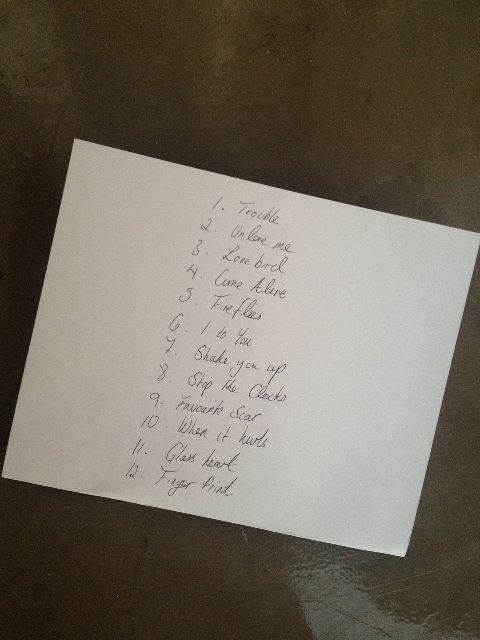 1. Trouble
2. Unlove me
3. Love bird
4. Come Alive
5. Fireflies
6. I to You
7. Shake you up
8. Stop the Clocks
9. Favourite Scar
10. When it hurts
11. Glass heart
12. Finger Print